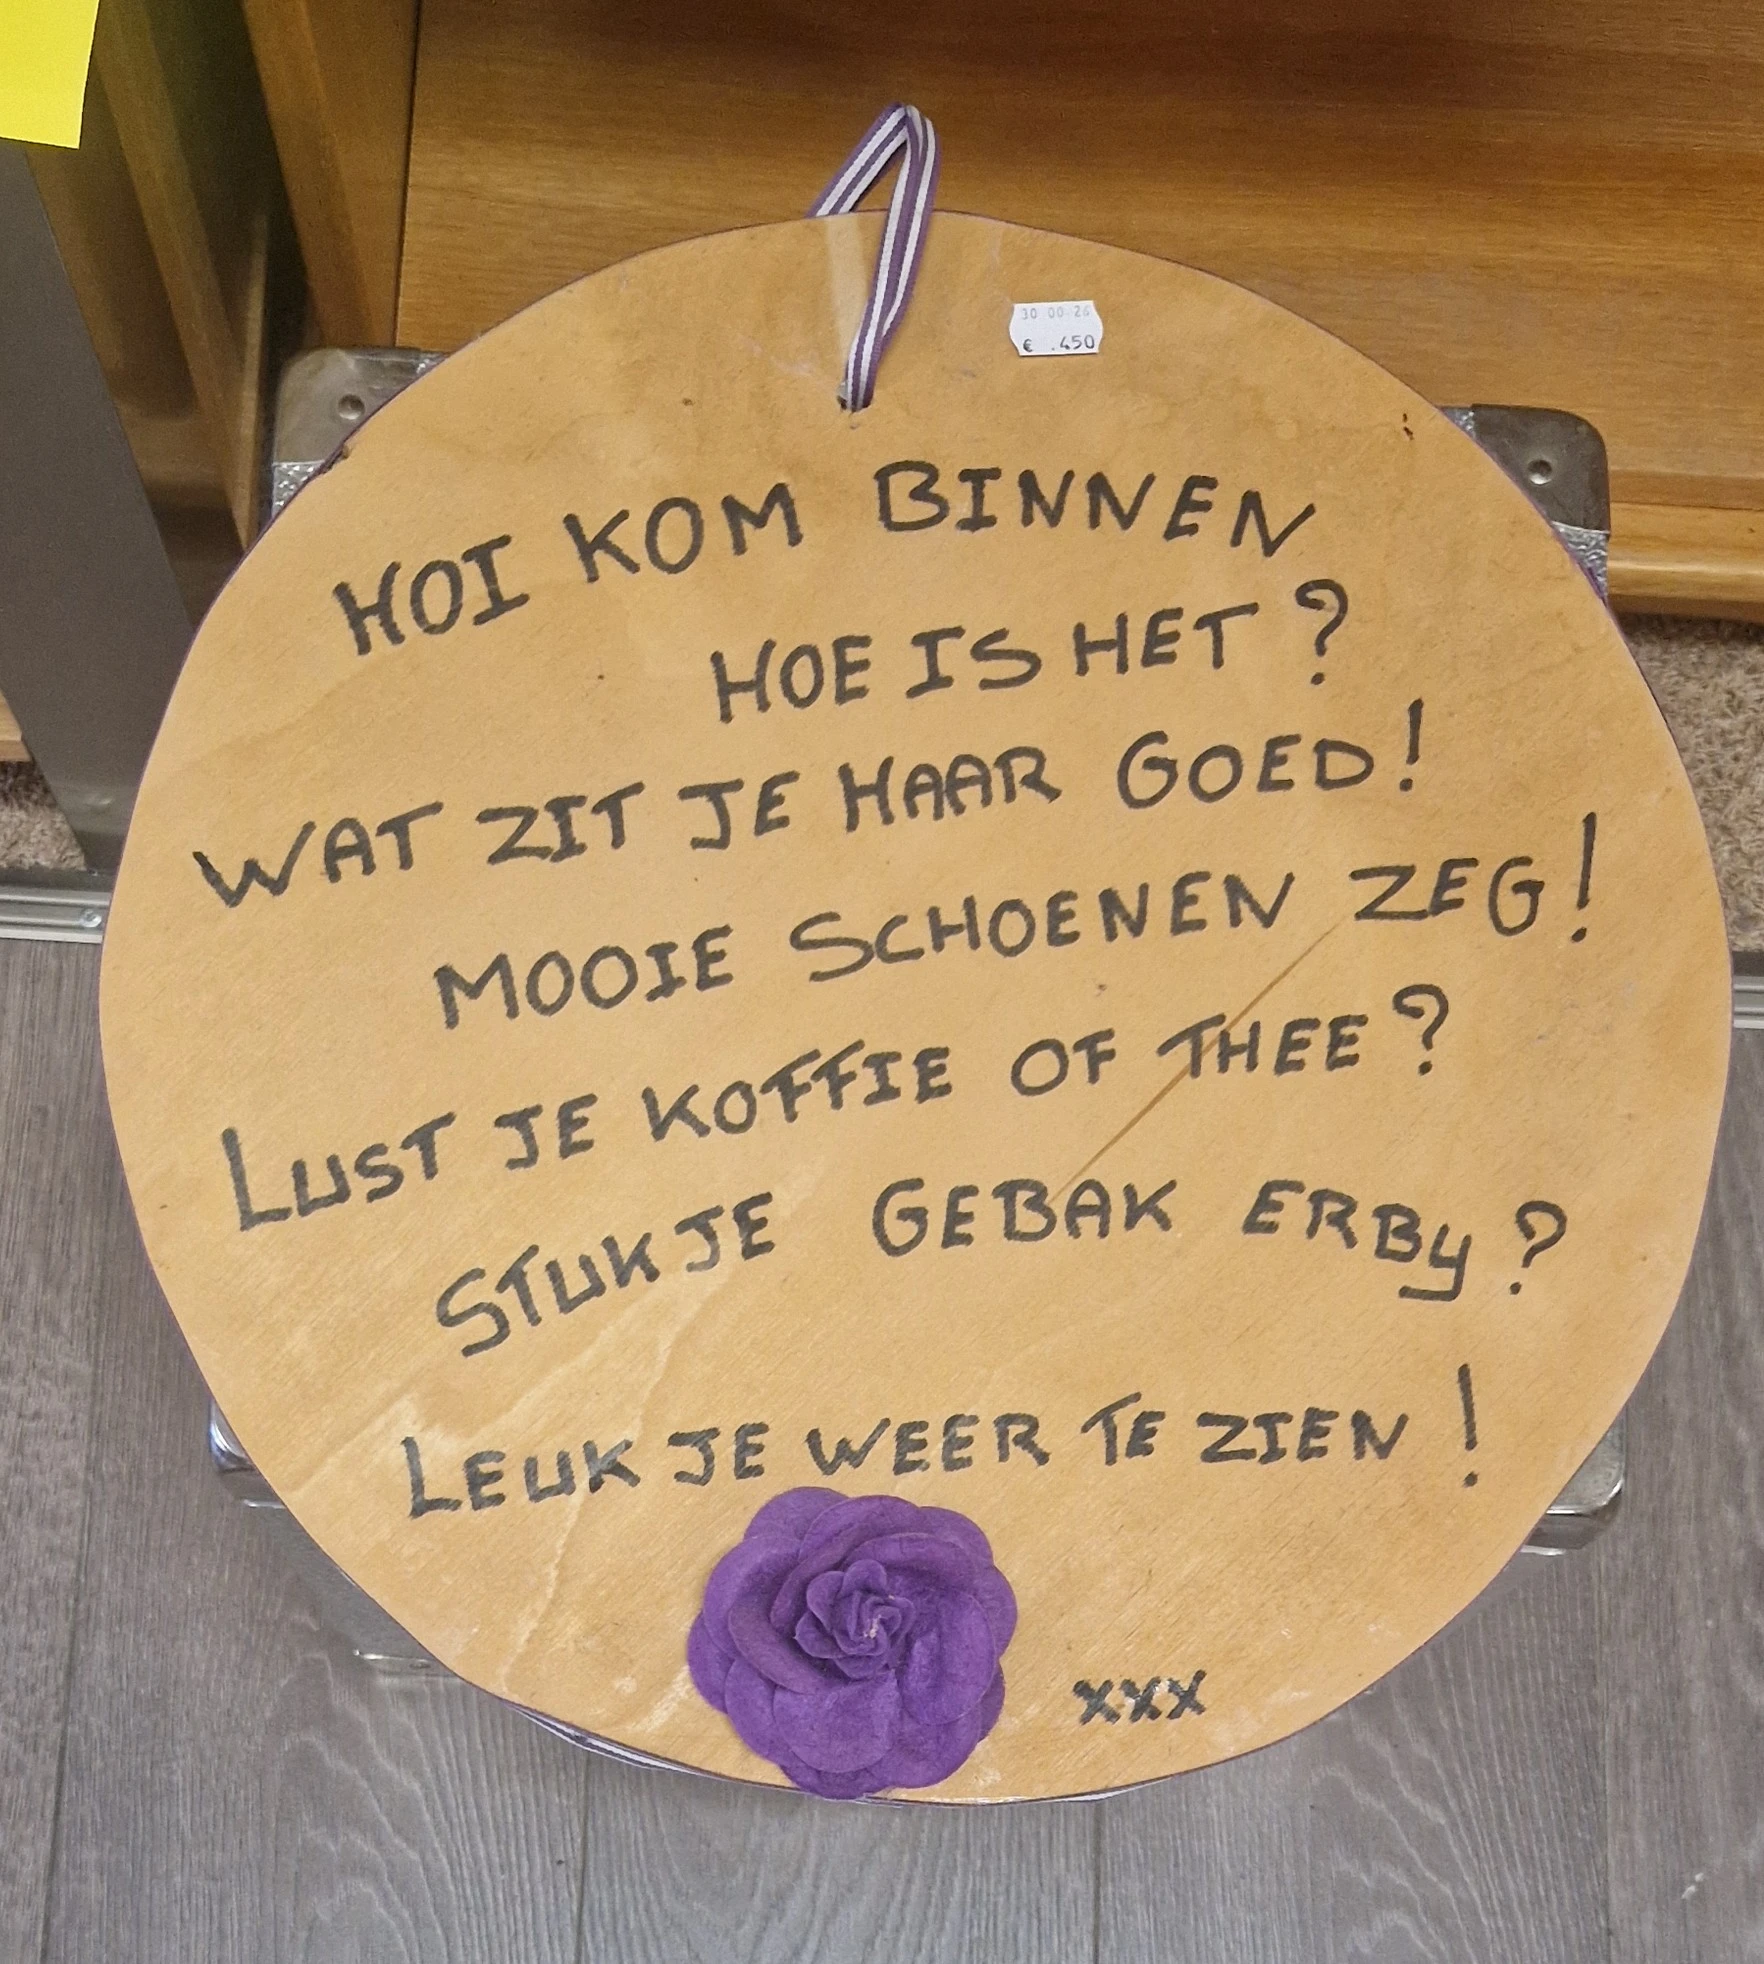 30 00 26
€ .450
HOI KOM BINNEN
HOE IS HET?
WAT ZIT JE HAAR GOED!
MOOIE SCHOENEN ZEG!
LUST JE KOFFIE OF THEE?
STUKJE GEBAK ERBY?
LEUK JE WEER TE ZIEN!
xxx